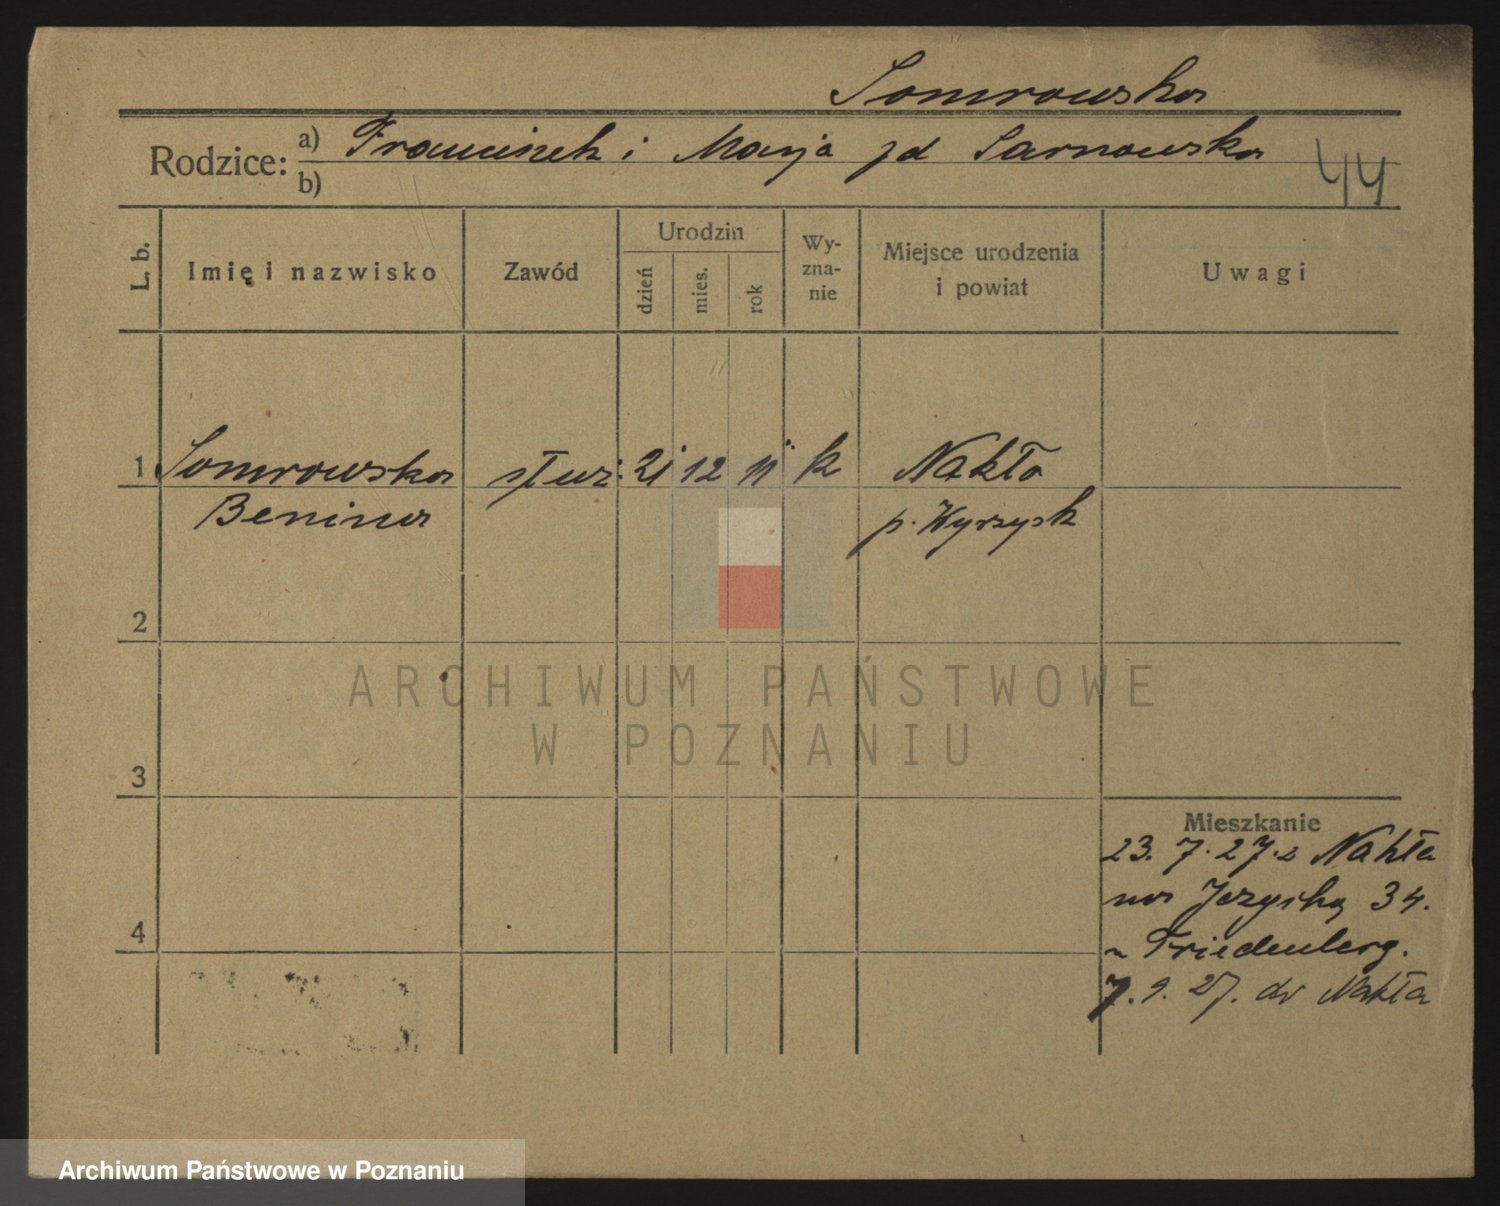 Somrowska
Rodzice: a) Franciszek i Marja zd Sarnowska
b)
44
L. b. Imię i nazwisko Zawód Urodzin dzień mies. rok Wy-zna-nie Miejsce urodzenia i powiat Uwagi
1 Somrowska służ. 21 12 11 k Nakło
Benina p. Wyrzysk
2
3
4
Mieszkanie
23. 7. 27. z Nakła
na Jeżycką 34.
u Friedenberg.
7. 9. 27. do Nakła
ARCHIWUM PAŃSTWOWE
W POZNANIU
Archiwum Państwowe w Poznaniu